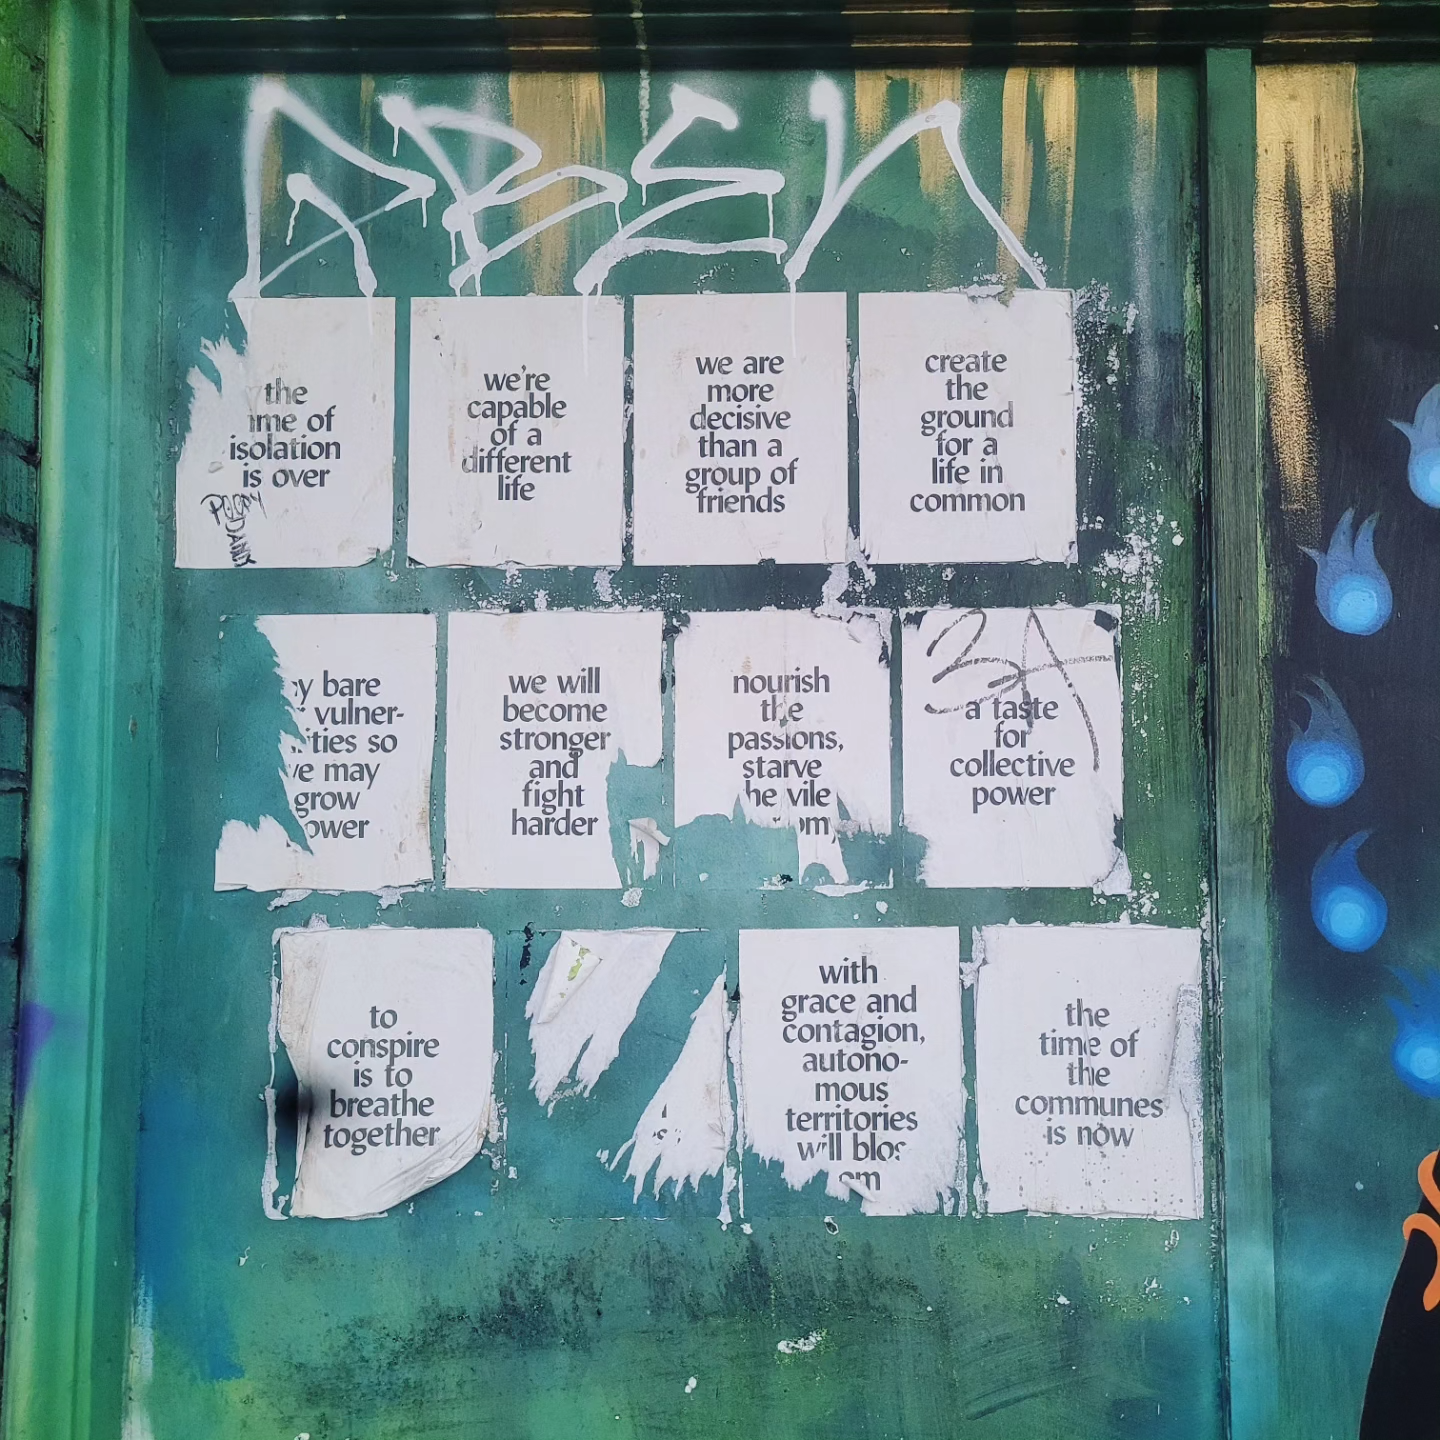 the
ime of
isolation
is over
we're
capable
of a
different
life
we are
more
decisive
than a
group of
friends
create
the
ground
for a
life in
common
y bare
vulner-
ities so
e may
grow
ower
we will
become
stronger
and
fight
harder
nourish
the
passions,
starve
he vile
om
3A
a taste
for
collective
power
to
conspire
is to
breathe
together
with
grace and
contagion,
autono-
mous
territories
will blos
om
the
time of
the
communes
is now